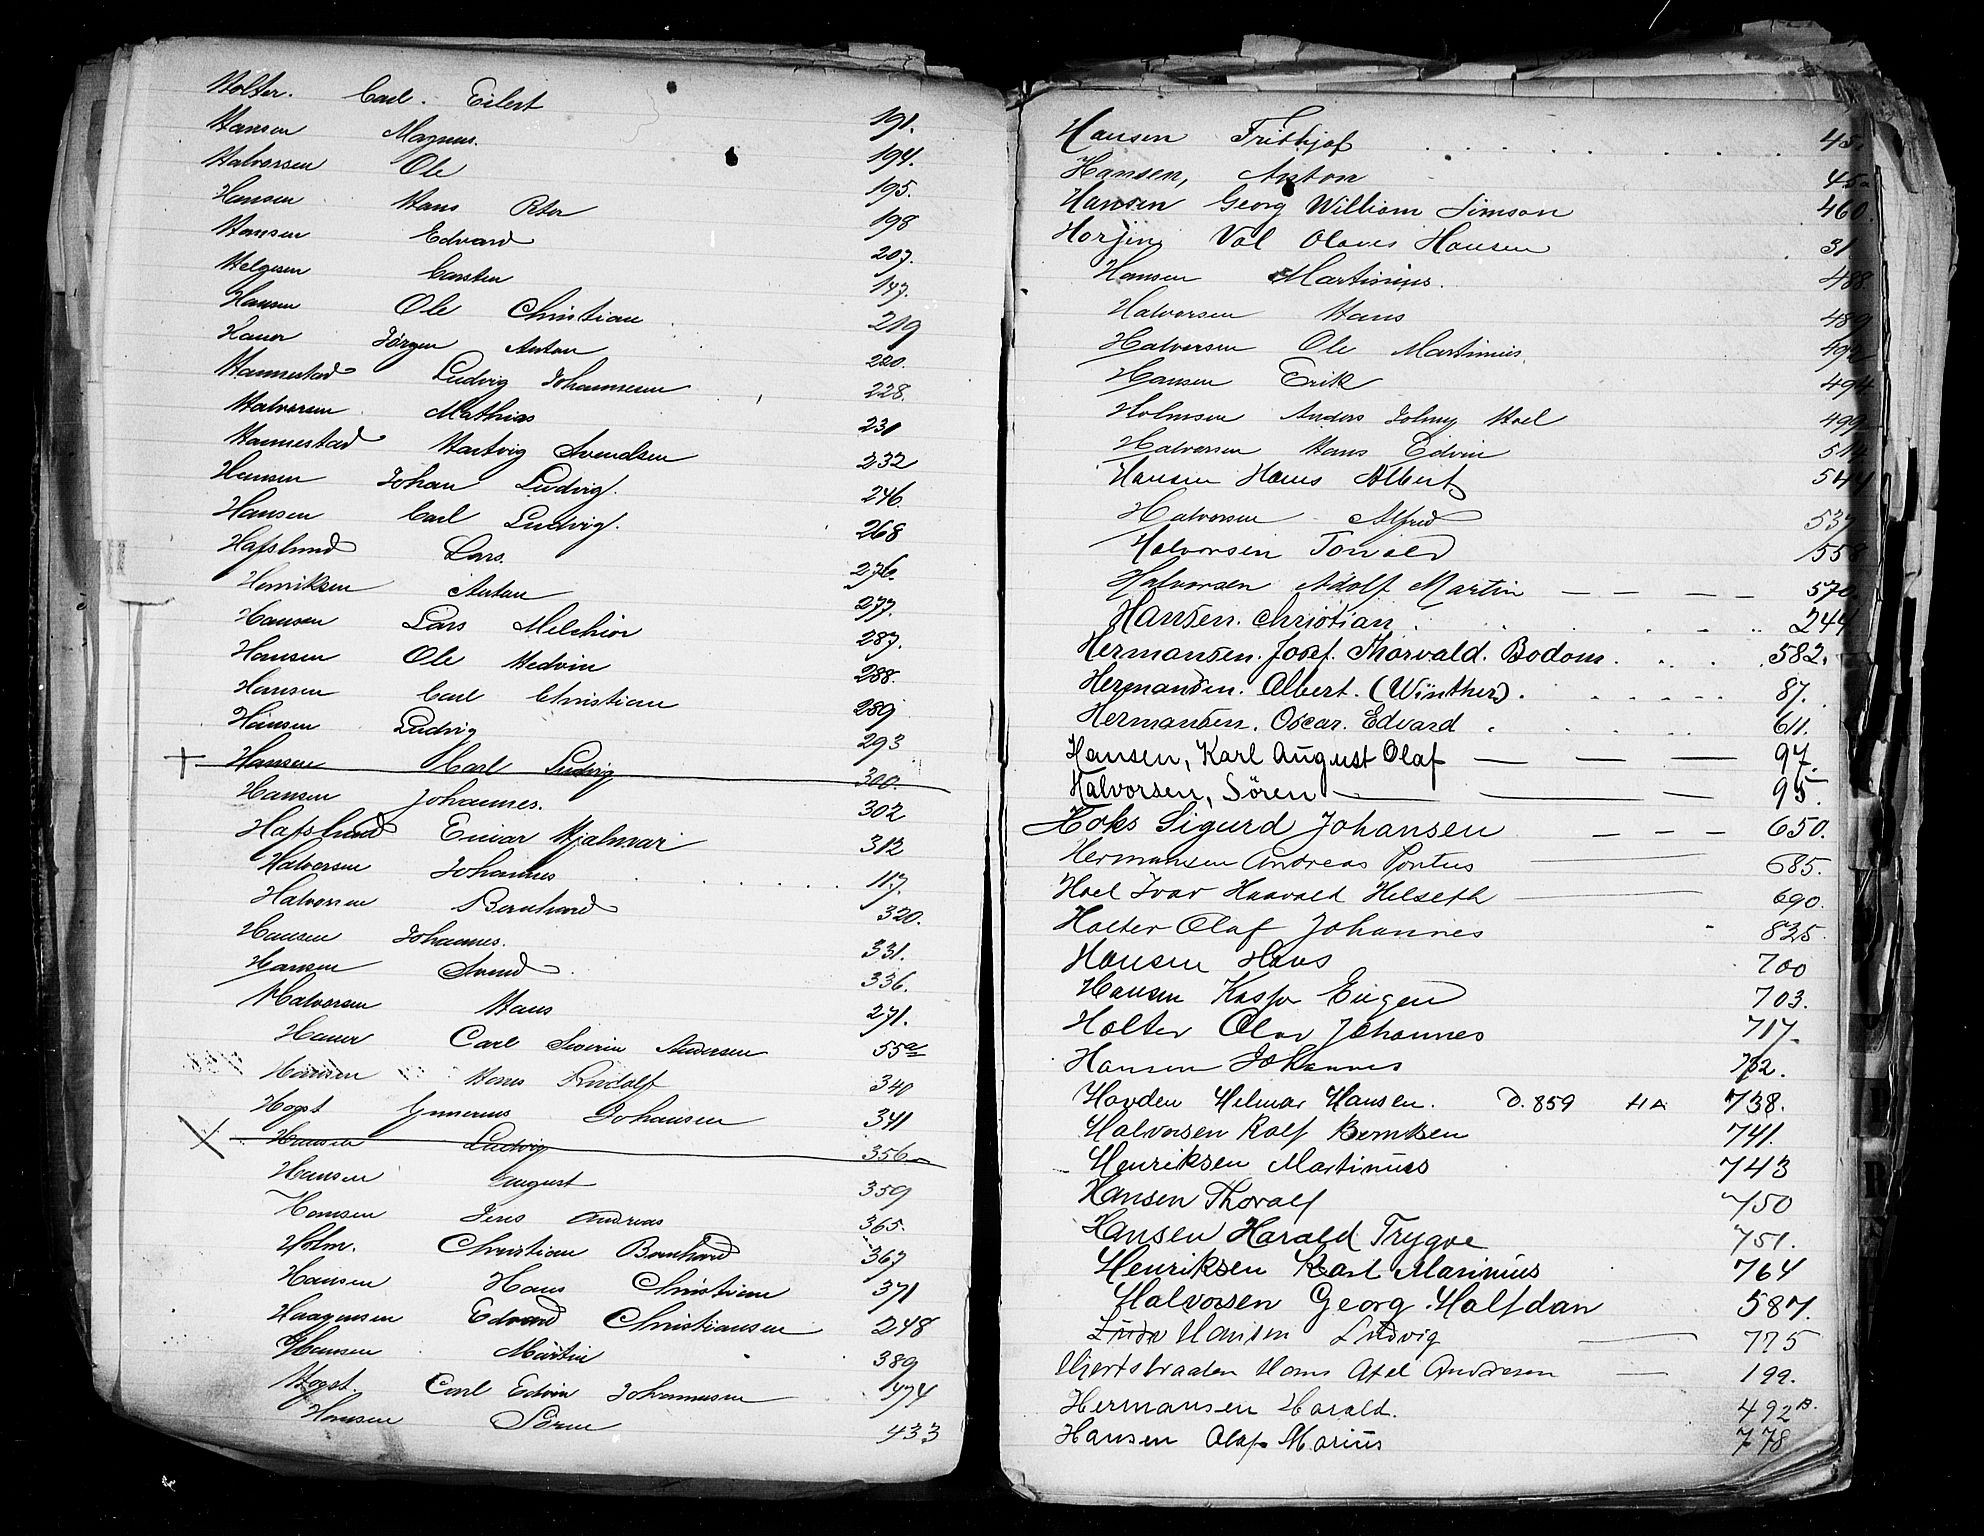 Holter. Carl. Eilert 191.
Hansen Magnus. 194.
Halvorsen Ole 195.
Hansen Hans Peter 198
Hansen Edvard 207.
Helgesen Carsten 147.
Hansen Ole Christian 219
Hauer Jörgen Anton 220.
Hannestad Ludvig Johannesen 228.
Halvorsen Mathias 231
Hannestad Hartvig Svendsen 232
Hansen Johan Ludvig. 246.
Hansen Carl Ludvig. 268
Hafslund Lars. 276.
Henriksen Anton 277.
Hansen Lars Melchior 287.
Hansen Ole Hedvin 288.
Hansen Carl Christian 289
Hansen Ludvig 293
Hansen Carl Ludvig 300.
Hansen Johannes. 302
Hafslund Einar Hjalmar 312
Halvorsen Johannes 117.
Halvorsen Bernhard 320.
Hansen Johannes. 331.
Hansen Svend 336.
Halvorsen Hans 271.
Hauer Carl Severin Andersen 55a
Hansen Hans Rudolf 340
Høgst Johansen 341
Hansen Ludvig 356
Hansen August 359
Hansen Jens Andreas 365.
Holm. Christian Bernhard 367
Hansen Hans Christian 371
Haagensen Edvard Christiansen 248
Hansen Martin 389
Høgst. Carl Edvin Johannesen 474
Hansen Sören 433
Hansen Frithjof 45.
Hansen, Anton 45a
Hansen Georg William Simson 460.
Val Olaves Hansen 31
Hansen Martinius. 488.
Halvorsen Hans 489
Halvorsen Ole Martinius. 492
Hansen Erik 494
Holmsen Anders Hoel 499
Halvorsen Hans Edvin
Hansen Hans Albert 544
Halvorsen Alfred 537
Halvorsen Torvald 558
Halvorsen Adolf Martin — — — — 570.
Hansen. Christian. 244
Hermansen. Josef. Thorvald. Bodom. 582.
Hermansen. Albert. (Winther). 87.
Hermansen. Oscar. Edvard 611.
Hansen, Karl August Olaf — — — — 97.
Halvorsen, Sören — — — 95.
Hoks Sigurd Johansen — — — 650.
Hermansen Andreas Pontus — 685.
Hoel Ivar Haavald Helseth — 690.
Holter Olaf Johannes 825.
Hansen Hans 700
Hansen Kaspar Eugen 703.
Holter Olav Johannes 717.
Hansen Johannes 732.
Hovden Helmar Hansen. D. 859 HA 738.
Halvorsen Rolf Berntsen 741.
Henriksen Martinius 743
Hansen Thoralf 750
Hansen Harald Trygve 751.
Henriksen Karl Marinius 764
Halvorsen Georg Halfdan 587.
Hansen Ludvig — 775
Hjertsbraaten Hans Axel Andresen — 199.
Hermansen Harald. 492B.
Hansen Olaf Marius 778